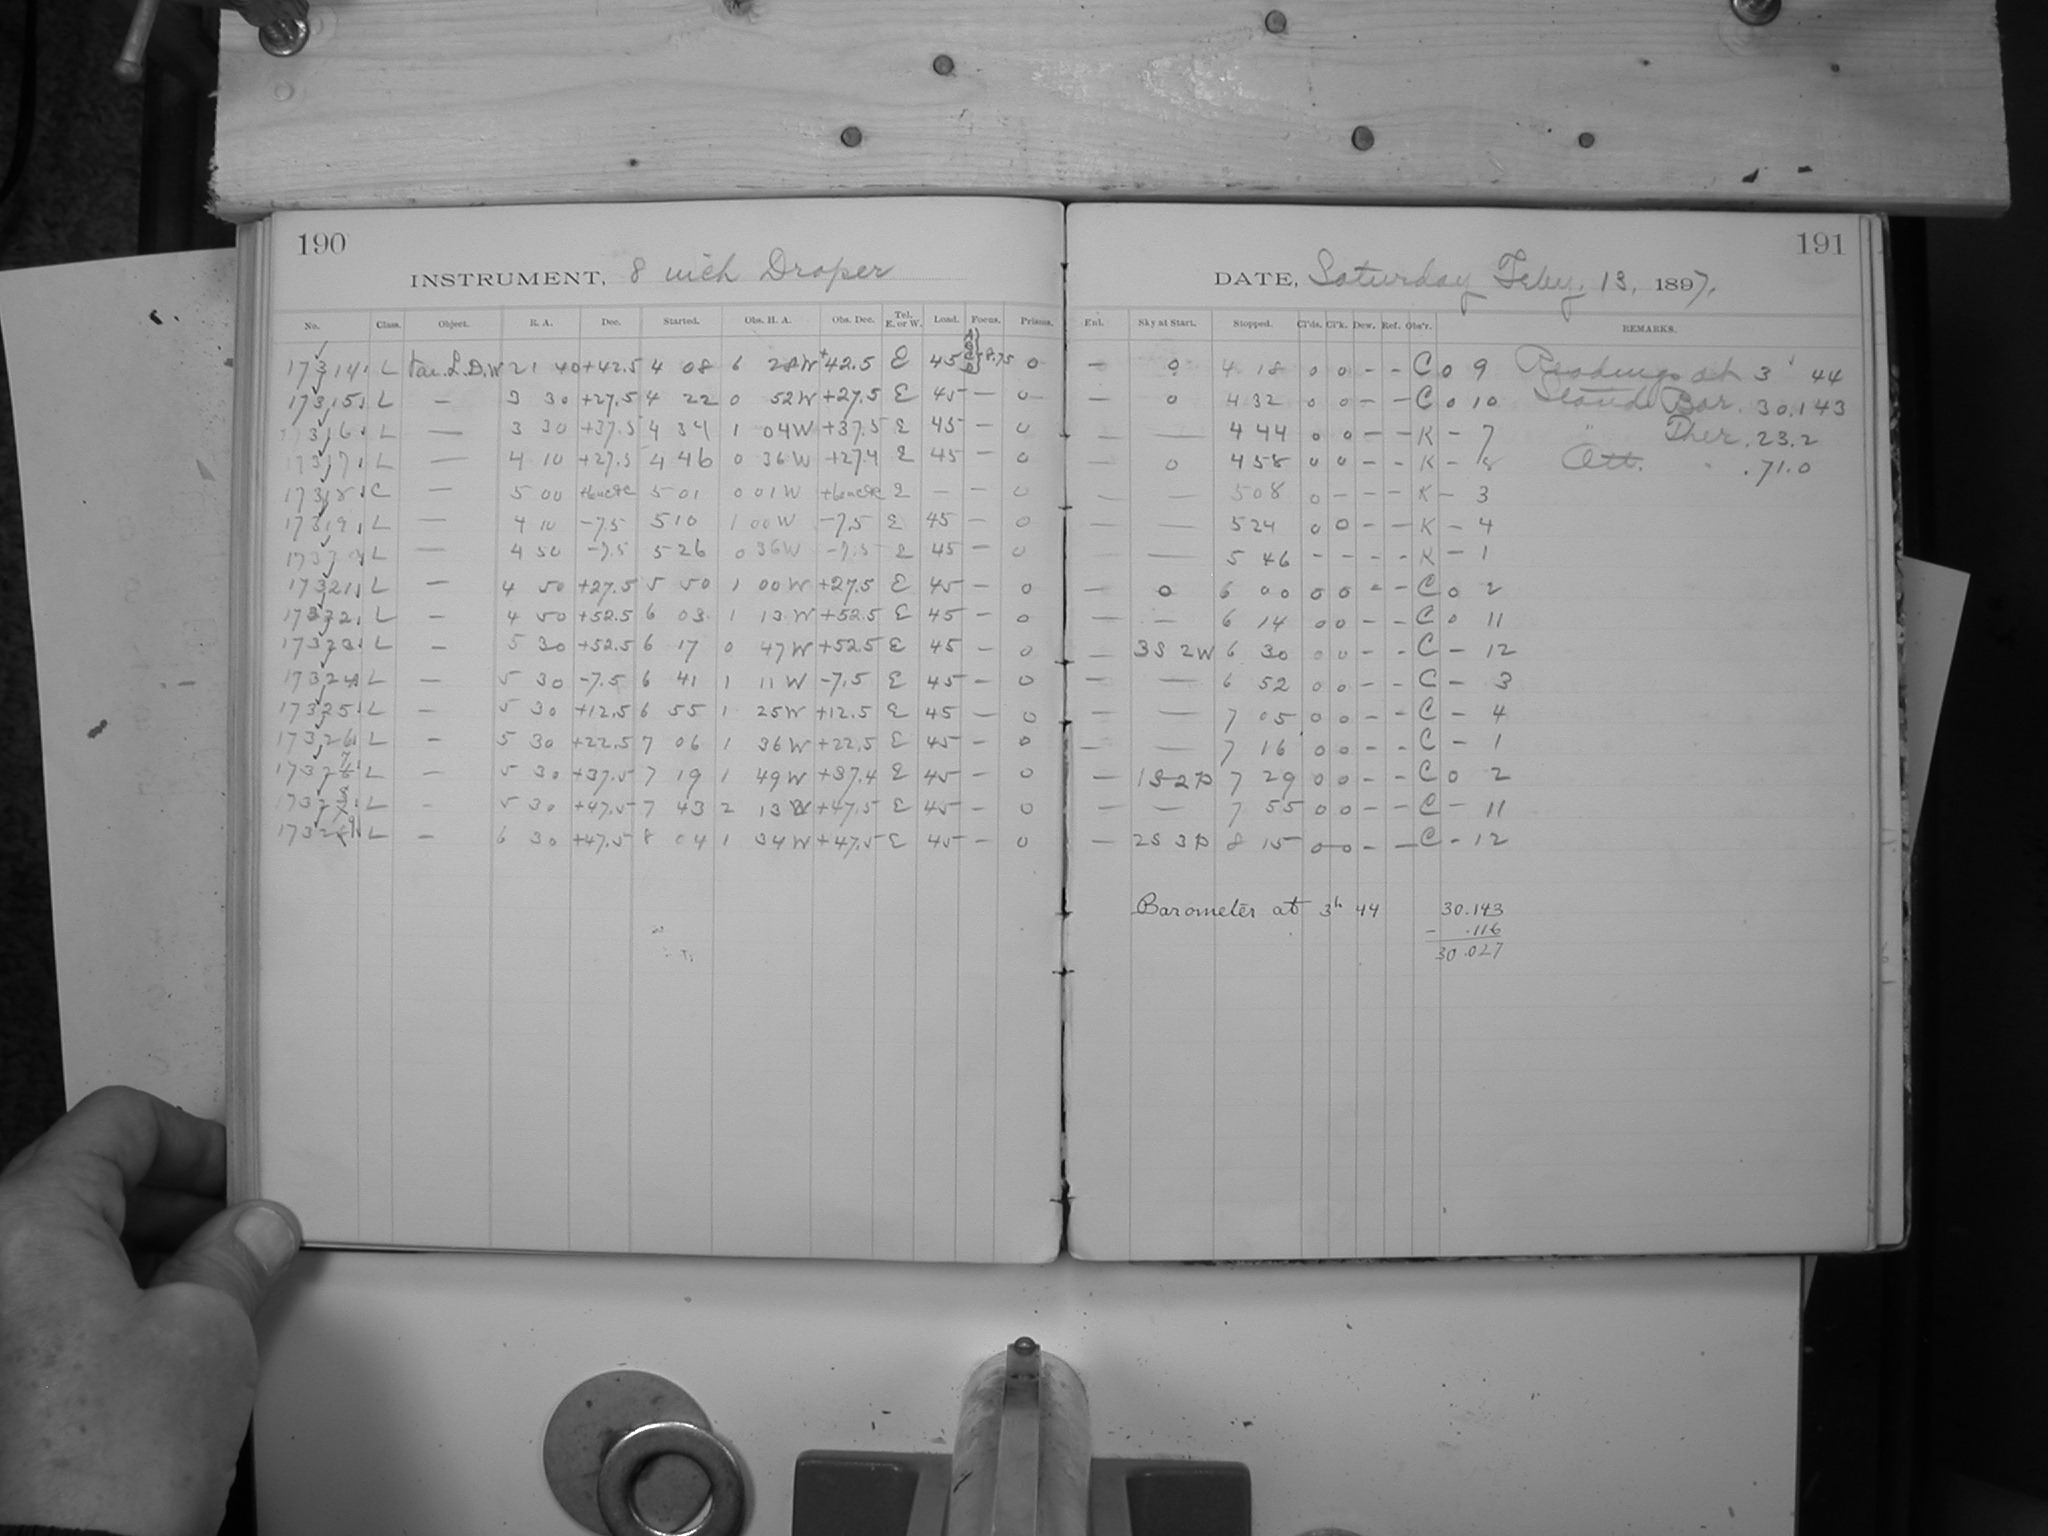 190
INSTRUMENT, 8 inch Draper
No. Class. Object. R. A. Dec. Started. Obs. H. A. Obs. Dec. Tel. E. or W. Load. Focus. Prisms.
17314 L Var. L.D.W 21 40 +42.5 4 08 6 28W +42.5 E 45 8.75 0
17315 L — 3 30 +27.5 4 22 0 52W +27.5 E 45 — 0
17316 L — 3 30 +37.5 4 34 1 04W +37.5 E 45 — 0
17317 L — 4 10 +27.5 4 46 0 36W +27.4 E 45 — 0
17318 C — 5 00 5 01 0 01W E — — 0
17319 L — 4 10 -7.5 5 10 1 00W -7.5 E 45 — 0
17320 L — 4 50 -7.5 5 26 0 36W -7.5 E 45 — 0
17321 L — 4 50 +27.5 5 50 1 00W +27.5 E 45 — 0
17322 L — 4 50 +52.5 6 03 1 13W +52.5 E 45 — 0
17323 L — 5 30 +52.5 6 17 0 47W +52.5 E 45 — 0
17324 L — 5 30 -7.5 6 41 1 11W -7.5 E 45 — 0
17325 L — 5 30 +12.5 6 55 1 25W +12.5 E 45 — 0
17326 L — 5 30 +22.5 7 06 1 36W +22.5 E 45 — 0
17327 L — 5 30 +37.5 7 19 1 49W +37.4 E 45 — 0
17328 L - 5 30 +47.5 7 43 2 13W +47.5 E 45 — 0
17329 L — 6 30 +47.5 8 04 1 34W +47.5 E 45 — 0
191
DATE, Saturday Feby. 13, 1897.
Enl. Sky at Start. Stopped. Cl'ds. Cl'k. Dew. Ref. Obs'r. REMARKS.
— 0 4 18 0 0 - - C 0 9 Readings at 3 44
— 0 4 32 0 0 - - C 0 10 Stand Bar. 30.143
— — 4 44 0 0 - - K - 7 " Ther. 23.2
— 0 4 58 0 0 - - K - 8 Att. " .71.0
— — 5 08 0 - - - K - 3
— — 5 24 0 0 - - K - 4
— — 5 46 - - - - K - 1
— 0 6 00 0 0 - - C 0 2
— — 6 14 0 0 - - C 0 11
— 3S 2W 6 30 0 0 - - C - 12
— — 6 52 0 0 - - C - 3
— — 7 05 0 0 - - C - 4
— — 7 16 0 0 - - C - 1
— 1S 2P 7 29 0 0 - - C 0 2
— — 7 55 0 0 - - C - 11
— 2S 3P 8 15 0 0 - - C - 12
Barometer at 3h 44 30.143
- .116
30.027